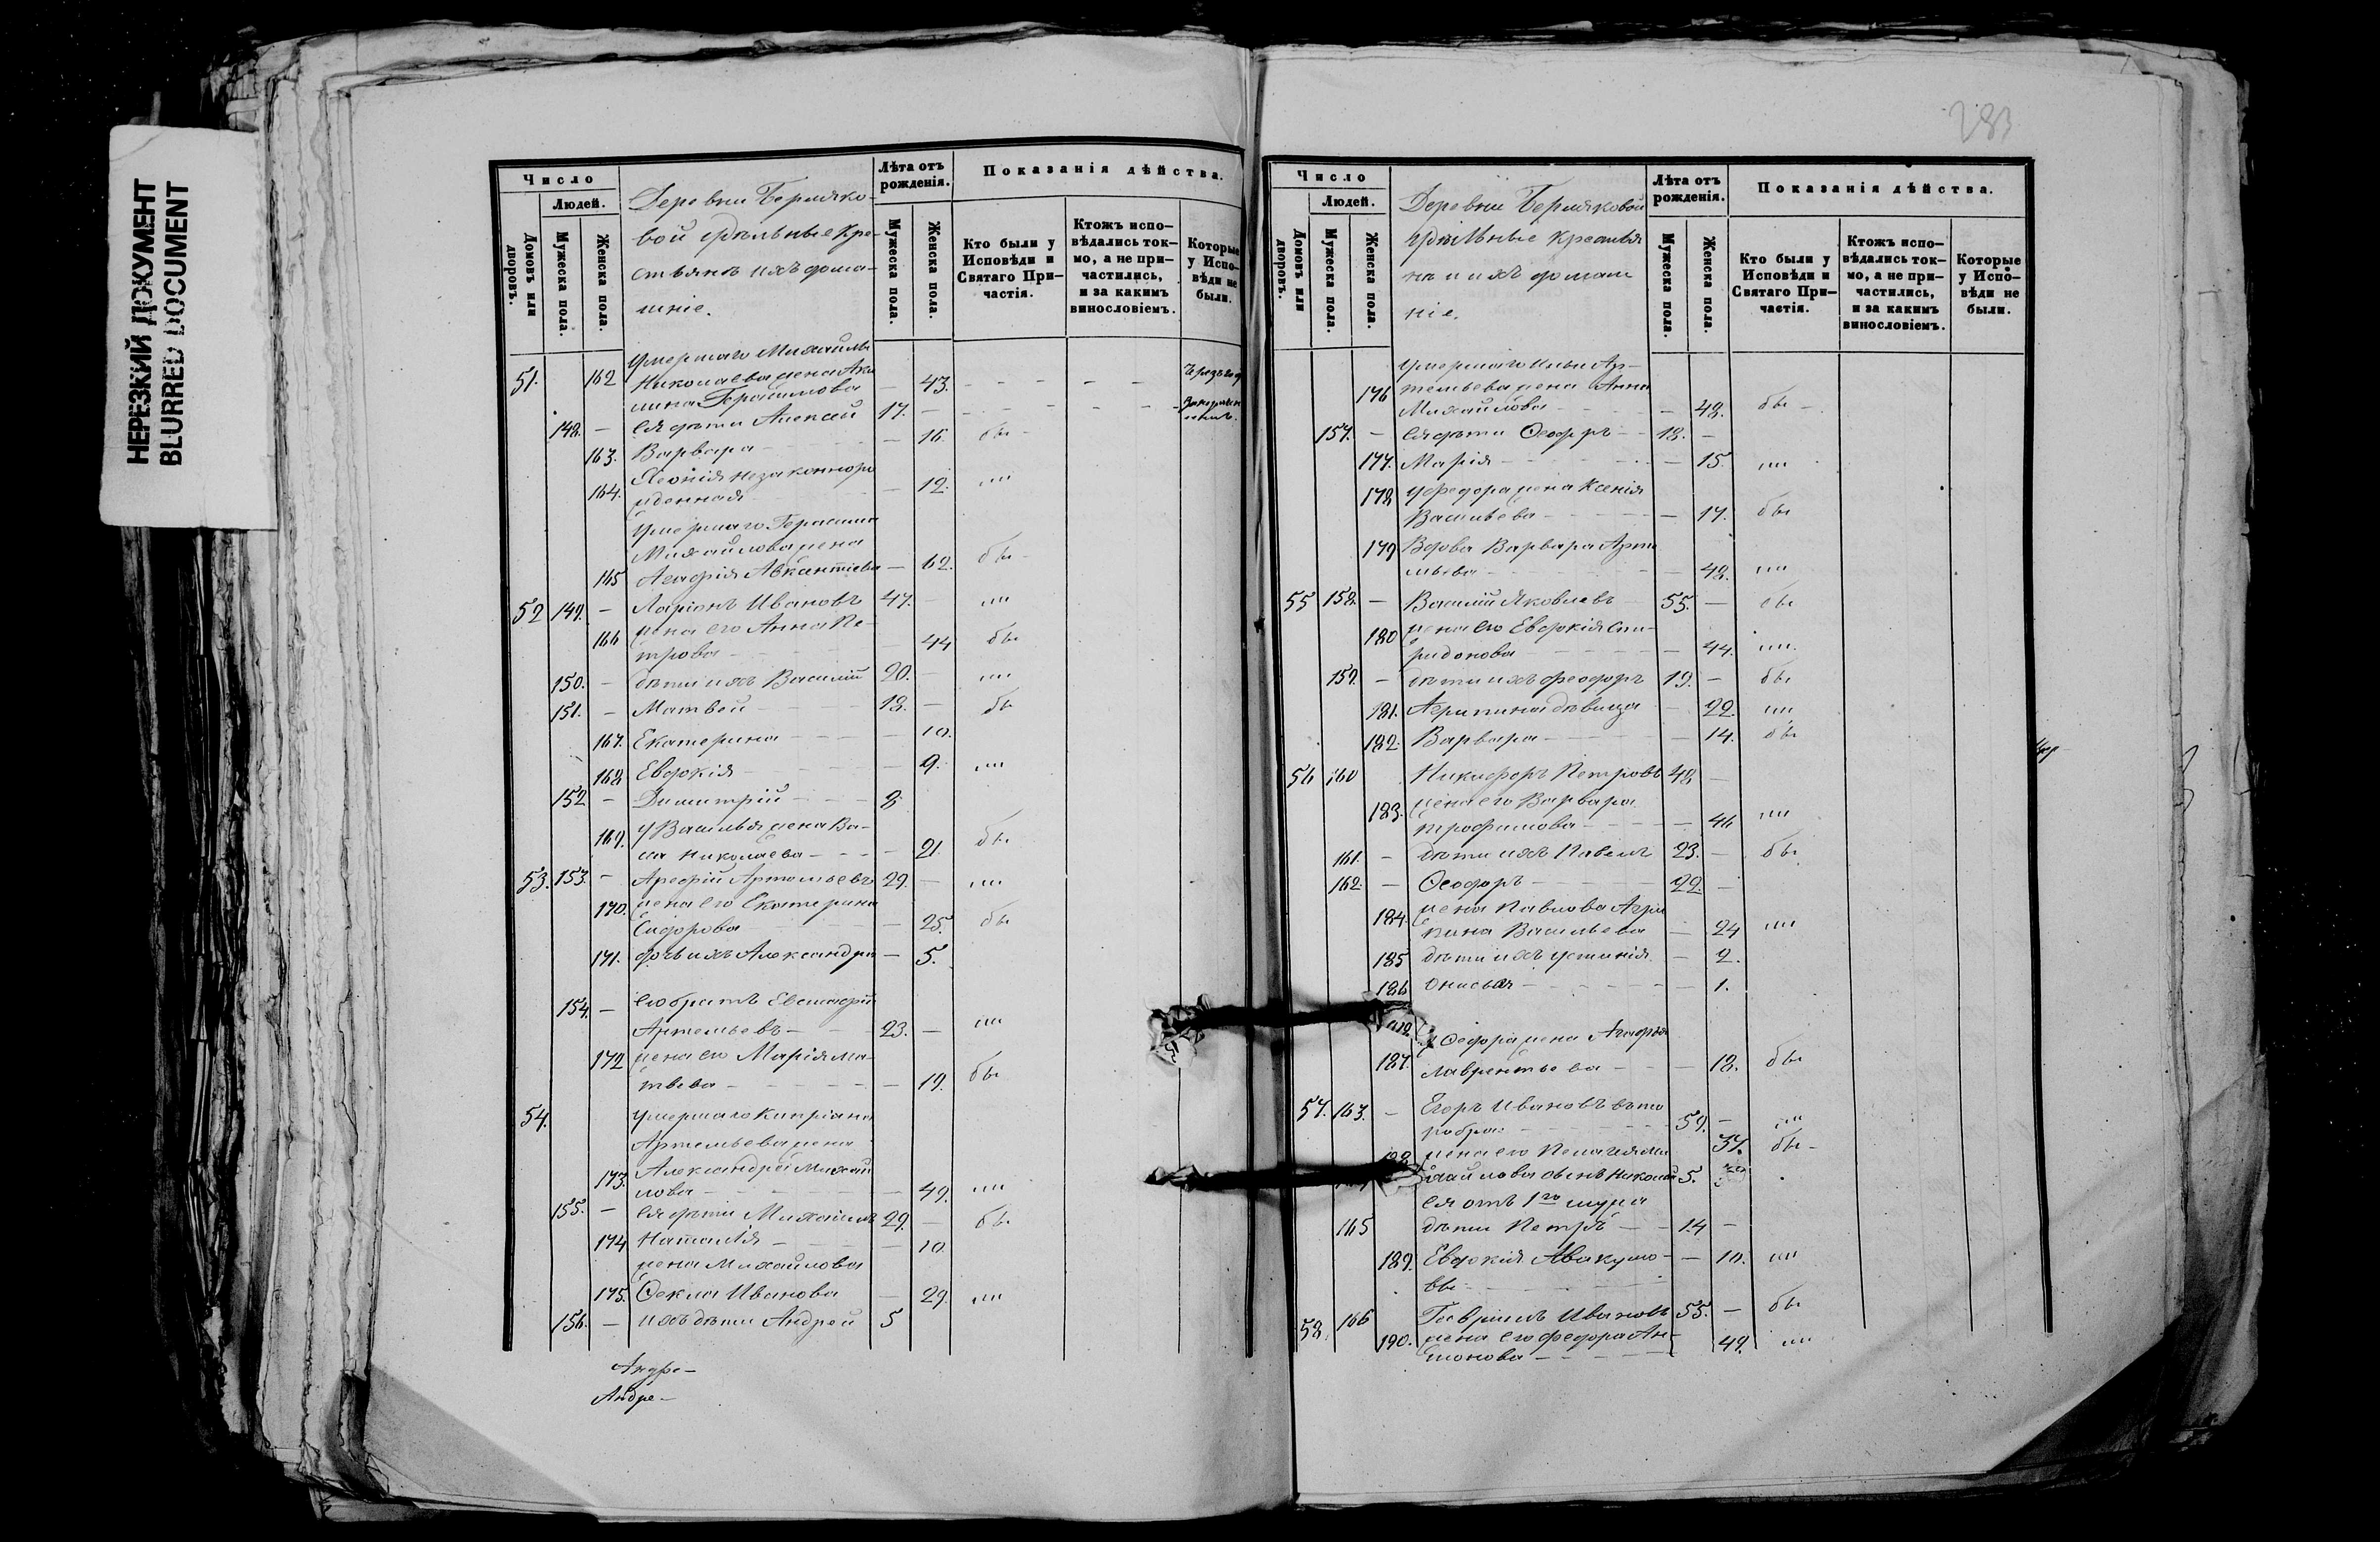 НЕРЕЗКИЙ ДОКУМЕНТ
BLURRED DOCUMENT
Число
Людей.
Домовъ или дворовъ.
Мужеска пола.
Женска пола.
Деревни Бермяко-
вой удѣльные кре-
стьянѣ и ихъ дома-
шніе.
Лѣта отъ рожденія.
Мужеска пола.
Женска пола.
Показанія дѣйства.
Кто были у Исповѣди и Святаго При-частія.
Ктожъ испо-вѣдались ток-мо, а не при-частились, и за какимъ винословіемъ.
Которые у Испо-вѣди не были.
умершаго Михайлы
51. 162 Николаева жена Аку
лина Герасимова — 43. - - - - -
148. — ея дѣти Алексей 17. — - - - - -
163. Варвара — 16. бы -
164. незаконноро
жденная — 12. ""
умершаго Герасима
Михайлова жена
165 — 62. бы -
52 149. — Ларіонъ Ивановъ 47. — ""
166 жена его Анна Пе-
трова — 44 бы
150. — дѣти ихъ Василій 20. — ""
151. — Матвей 18. — бы
167. Екатерина — 10.
168 Евдокія — 9. ""
152 — Димитрій 8.
169. у Василья жена Ва-
са Николаева — 21. бы
53. 153. — Арефій Артемьевъ 29. — ""
170. жена его Екатерина
Сидорова — 25. бы
171. дочь ихъ Александра — 5.
154. — его братъ
Артемьевъ 23. — ""
172 жена его Марія Ма-
твева — 19. бы
54. умершаго Кипріана
Артемьева жена
173. Александра Михай
лова — 49. ""
155. — ея дѣти Михаилъ 29. — бы
174 Наталія — 10.
жена Михайлова
175. Ѳекла Иванова — 29. ""
156. — ихъ дѣти Андрей 5
Андре-
Андре-
283
Число
Людей.
Домовъ или дворовъ.
Мужеска пола.
Женска пола.
Деревни Бермяковой
удѣльные крестья
нѣ и ихъ домаш
ніе.
Лѣта отъ рожденія.
Мужеска пола.
Женска пола.
Показанія дѣйства.
Кто были у Исповѣди и Святаго При-частія.
Ктожъ испо-вѣдались ток-мо, а не при-частились, и за какимъ винословіемъ.
Которые у Испо-вѣди не были.
умершаго Ильи Ар-
176 темьева жена Анна
Михайлова — 48. бы -
157. — ея дѣти Ѳеодоръ 18. —
177. Марія — 15. ""
178 у Федора жена Ксенія
Васильева — 17. бы
179 Вдова Варвара Арте
мьева — 48. ""
55 158. — Василій Яковлевъ 55. — бы
180 жена его Евдокія Спи-
ридонова — 44. ""
159. — дѣти ихъ Феодоръ 19. — бы
181. Агрипина дѣвица — 22. ""
182. Варвара — 14. бы
56 160 Никифоръ Петровъ 48 —
183. жена его Варвара
Трофимова — 46 ""
161. — дѣти ихъ Павелъ 23. — бы
162. — Ѳеодоръ 22. —
184. жена Павлова Агри
пина Васильева — 24 ""
185 дѣти ихъ Устинія — 2.
186 Онисья — 1.
у Ѳеодора жена Агафья
187. Лаврентьева — 18. бы
57. 163. — Егоръ Ивановъ вто
робра: 59. — ""
188 жена его Пелагея Ми 37. бы -
хайлова сынъ Николай 5.
ея отъ 1го мужа
165 дѣти Петръ 14 —
189. Евдокія Авакумо- — 10. ""
вы
58. 166 Гавріилъ Ивановъ 55. — бы
190. жена его Федора Ан-
тонова 49. ""